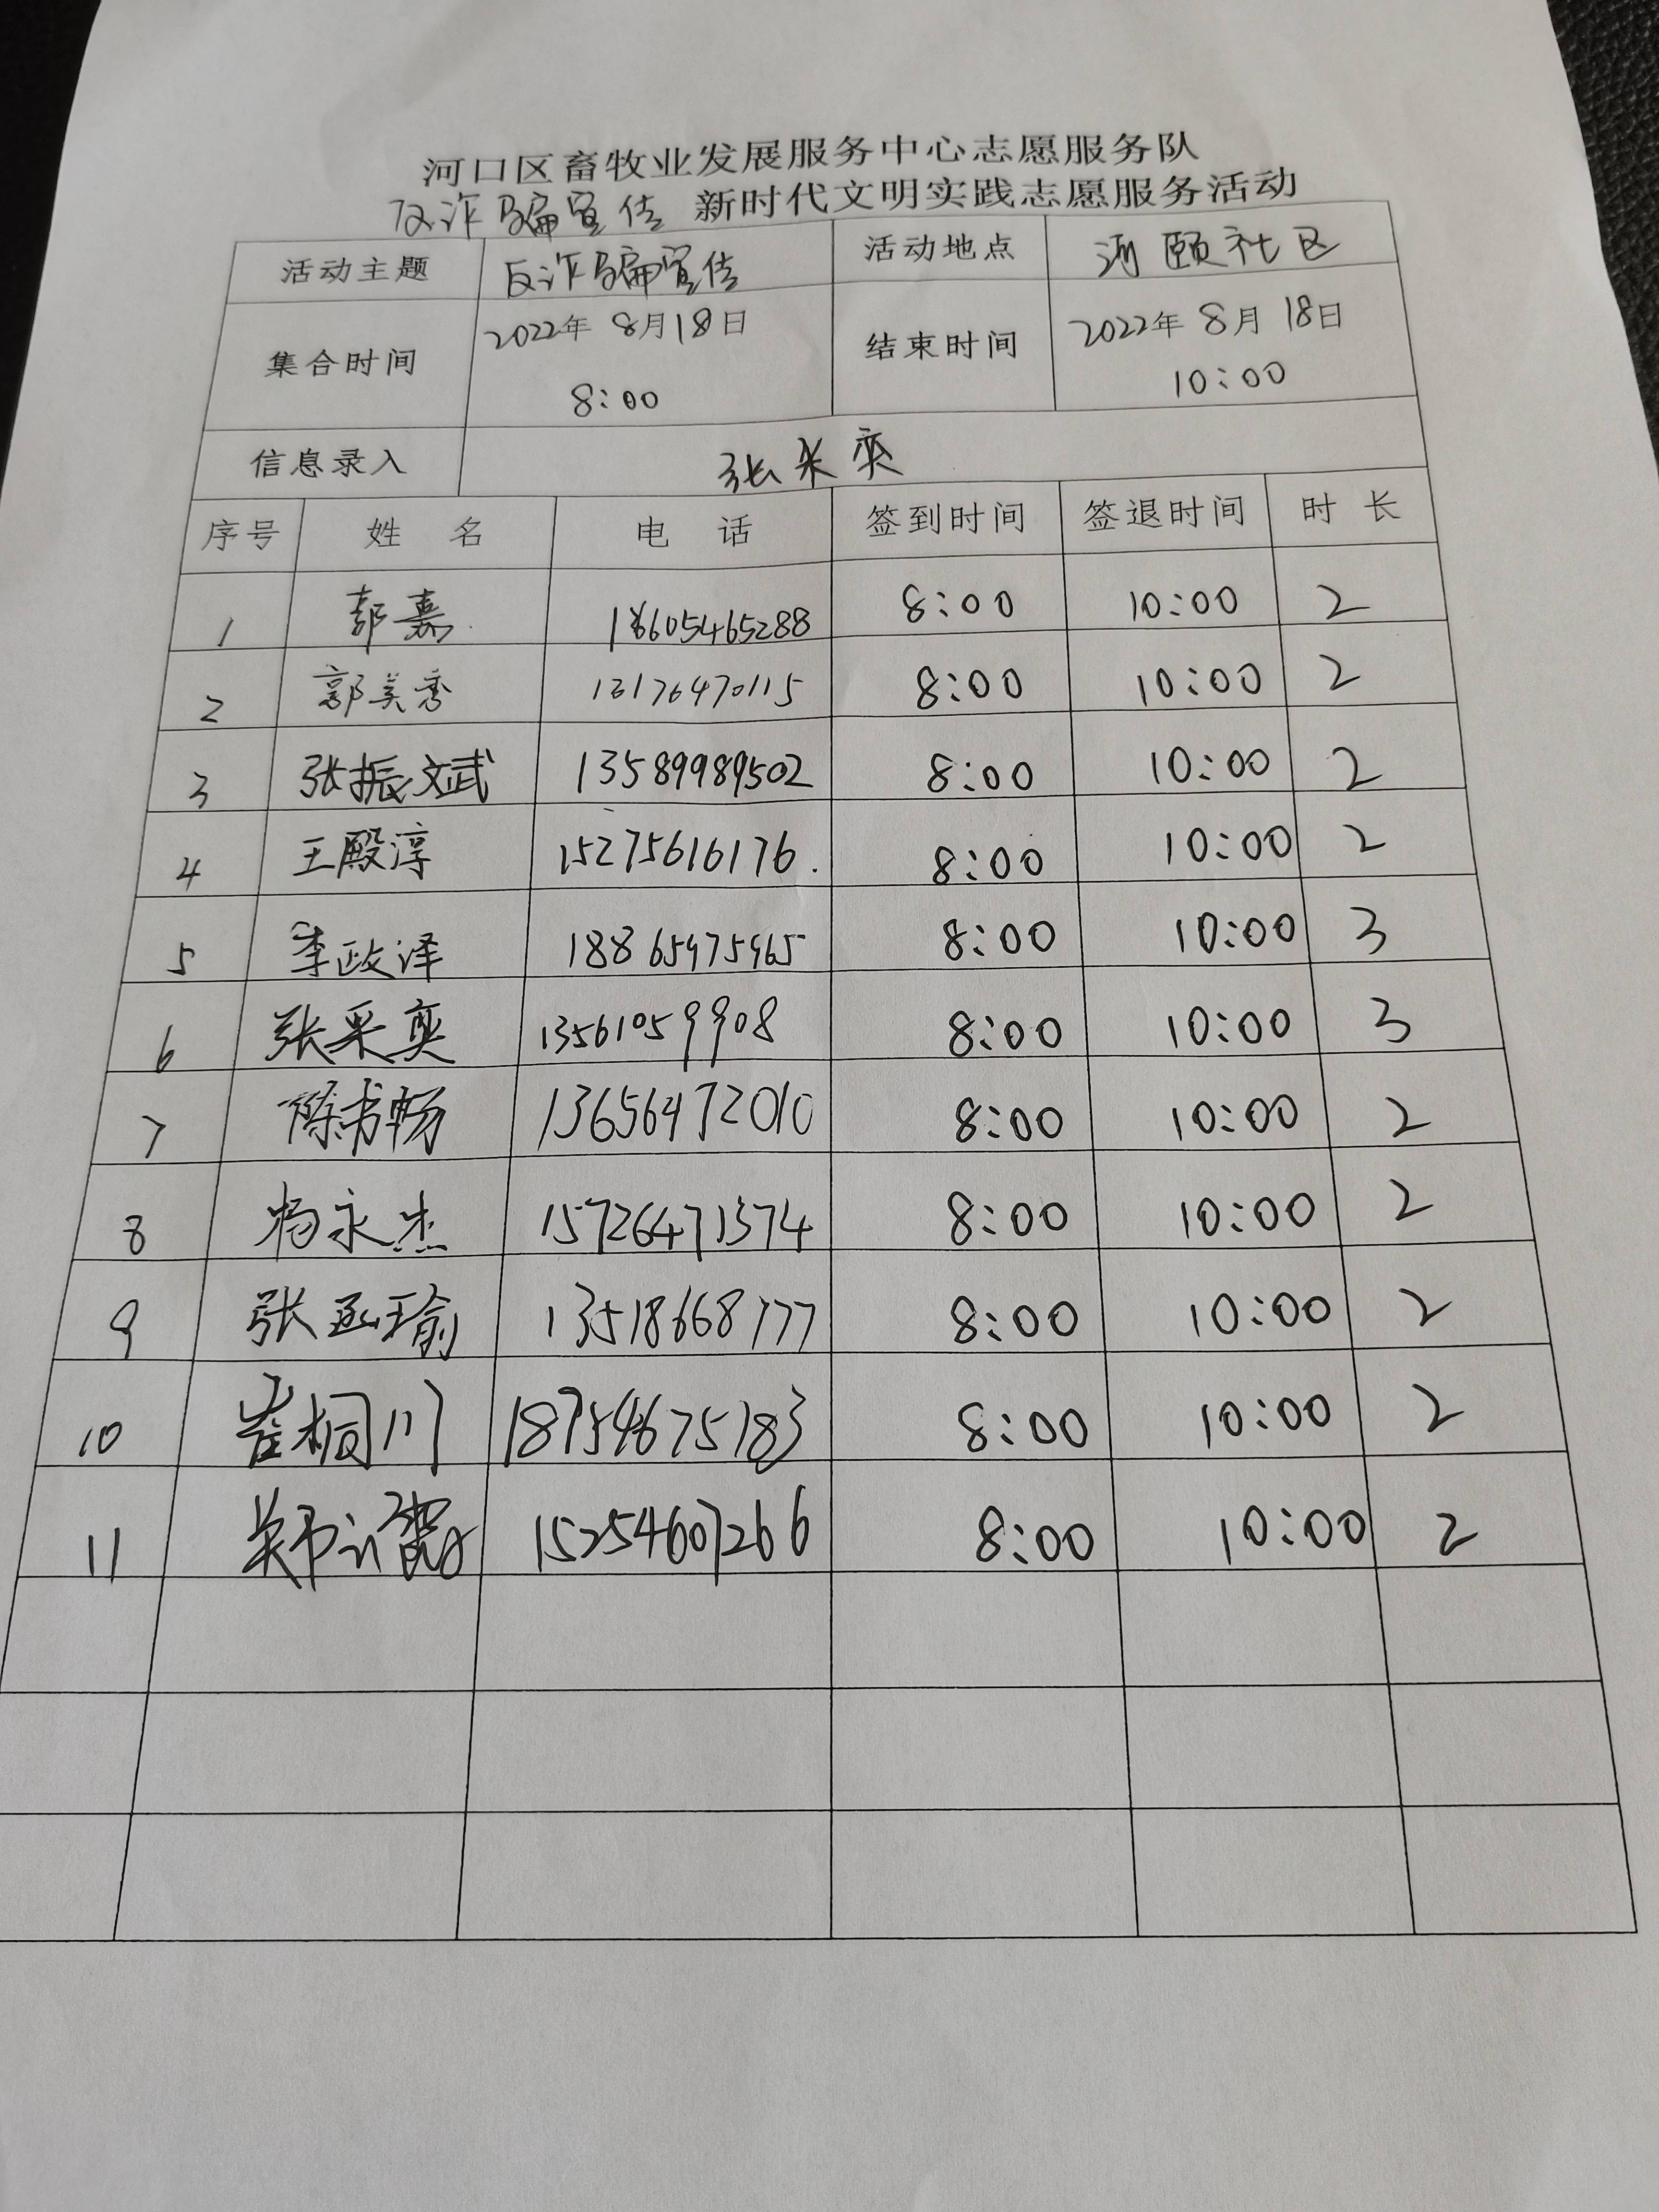 河口区畜牧业发展服务中心志愿服务队
反诈骗宣传 新时代文明实践志愿服务活动
活动主题 反诈骗宣传 活动地点 河颐社区
集合时间 2022年 8月18日 8:00 结束时间 2022年 8月 18日 10:00
信息录入 张采奕
序号 姓 名 电 话 签到时间 签退时间 时 长
1 郭嘉 18605465288 8:00 10:00 2
2 郭美秀 13176470115 8:00 10:00 2
3 张振文武 13589989502 8:00 10:00 2
4 王殿淳 15275616176. 8:00 10:00 2
5 李政泽 18865975965 8:00 10:00 3
6 张采奕 13561059908 8:00 10:00 3
7 陈书畅 13656472010 8:00 10:00 2
8 杨永杰 15726471374 8:00 10:00 2
9 张函瑜 13518668777 8:00 10:00 2
10 崔桐川 18754675183 8:00 10:00 2
11 15254607266 8:00 10:00 2